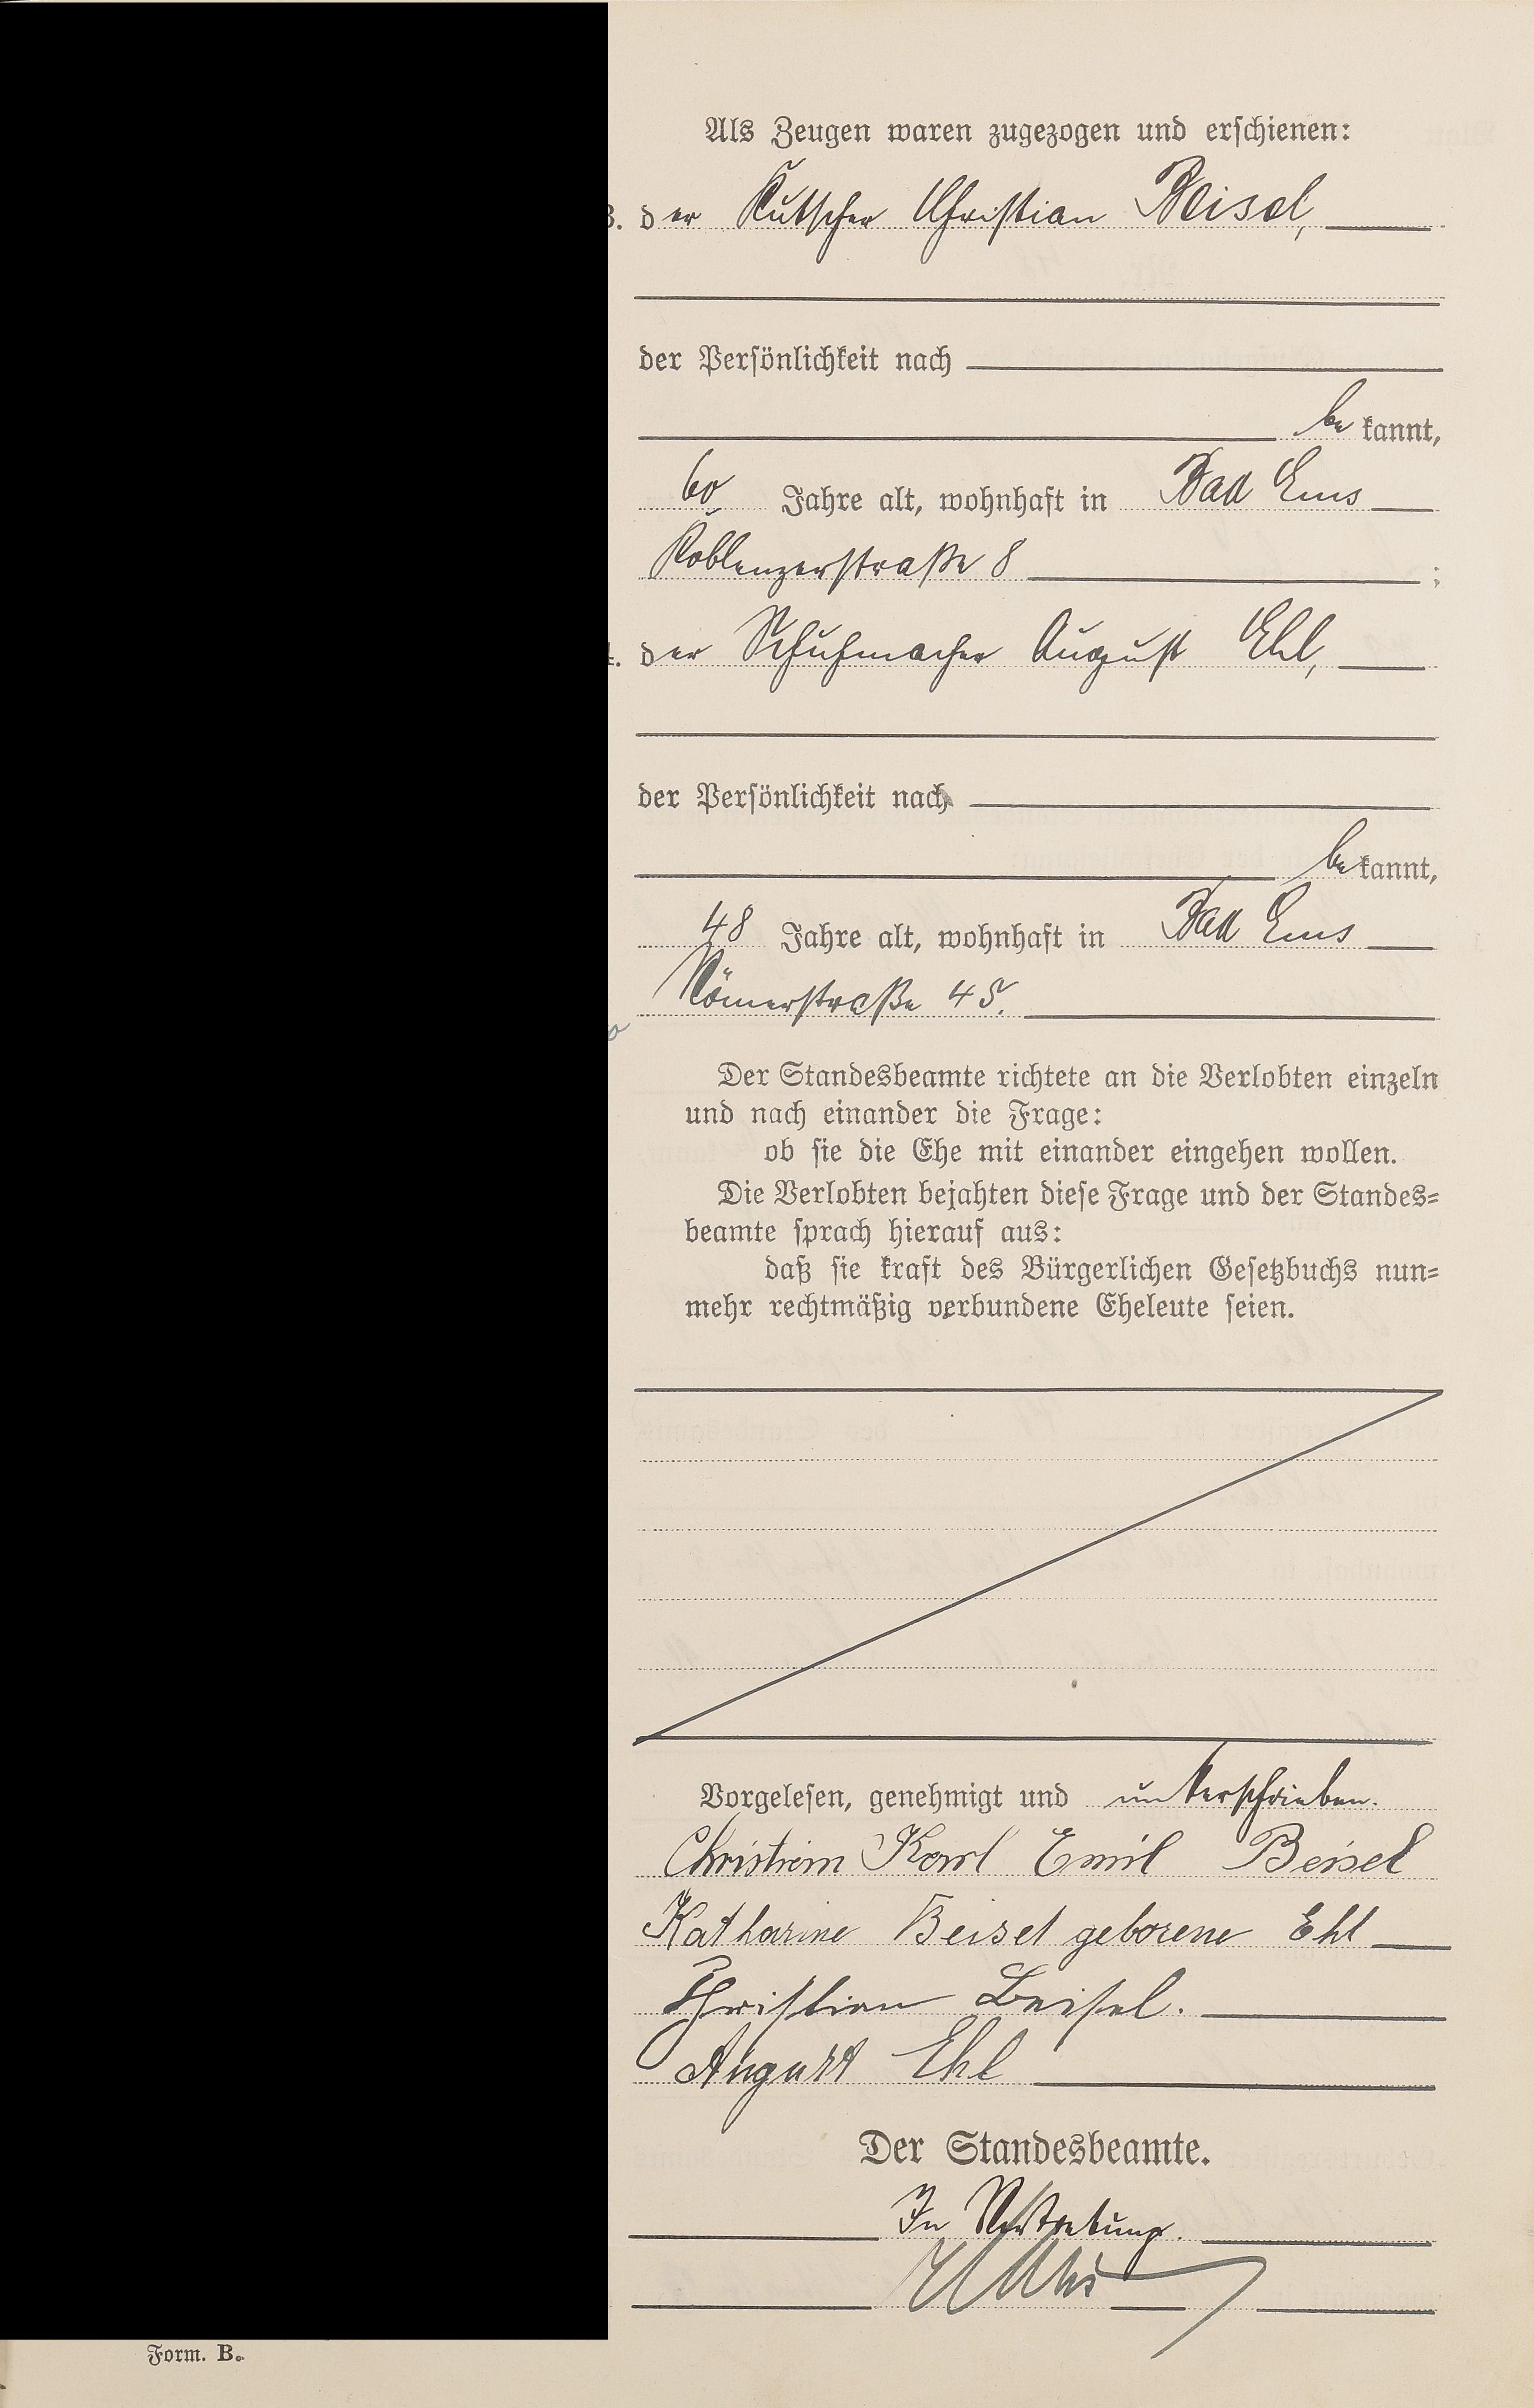 Als Zeugen waren zugezogen und erschienen:
3. der Kutscher Christian Beisel,
der Persönlichkeit nach
bekannt,
60 Jahre alt, wohnhaft in Bad Ems
Koblenzerstraße 8 ;
4. der Schuhmacher August Ehl,
der Persönlichkeit nach
bekannt,
48 Jahre alt, wohnhaft in Bad Ems
Römerstraße 45.
Der Standesbeamte richtete an die Verlobten einzeln
und nach einander die Frage:
ob sie die Ehe mit einander eingehen wollen.
Die Verlobten bejahten diese Frage und der Standes=
beamte sprach hierauf aus:
daß sie kraft des Bürgerlichen Gesetzbuchs nun=
mehr rechtmäßig verbundene Eheleute seien.
Vorgelesen, genehmigt und unterschrieben.
Christian Karl Emil Beisel
Katharine Beisel geborene Ehl
Christian Beisel.
August Ehl
Der Standesbeamte.
In Vertretung.
Form. B.